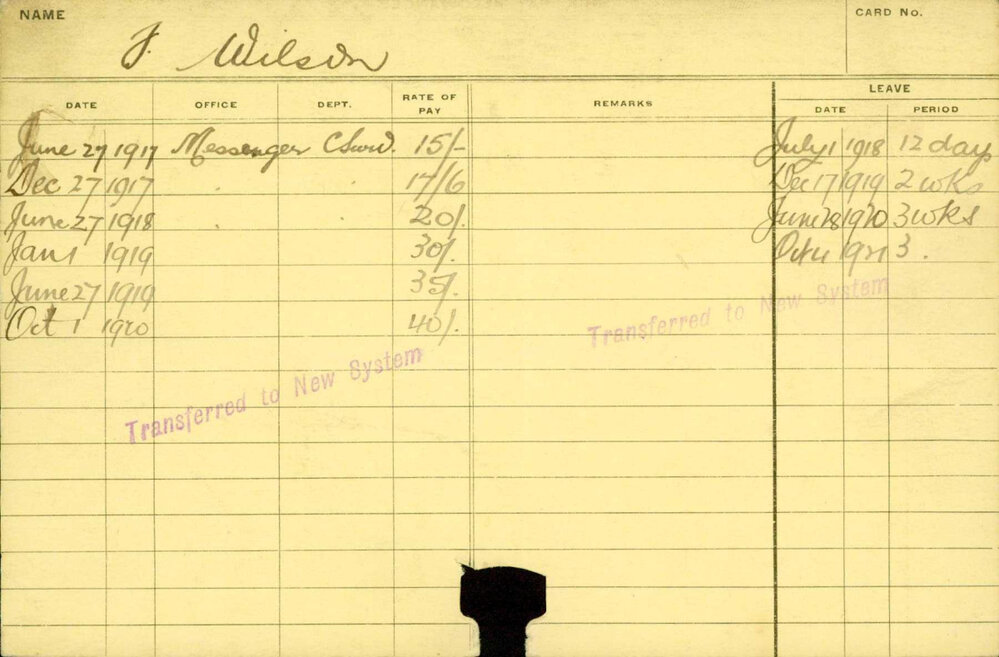 NAME
CARD No.
F. Wilson
DATE OFFICE DEPT. RATE OF PAY REMARKS LEAVE
DATE PERIOD
June 27 1917 Messenger 15/- July 1 1918 12 days
Dec 27 1917 " 17/6 Dec 17 1919 2 wks
June 27 1918 " " 20/. June 28 1920 3 wks
Jan 1 1919 30/. Oct 11 1921 3 .
June 27 1919 35/.
Oct 1 1920 40/.
Transferred to New System
Transferred to New System